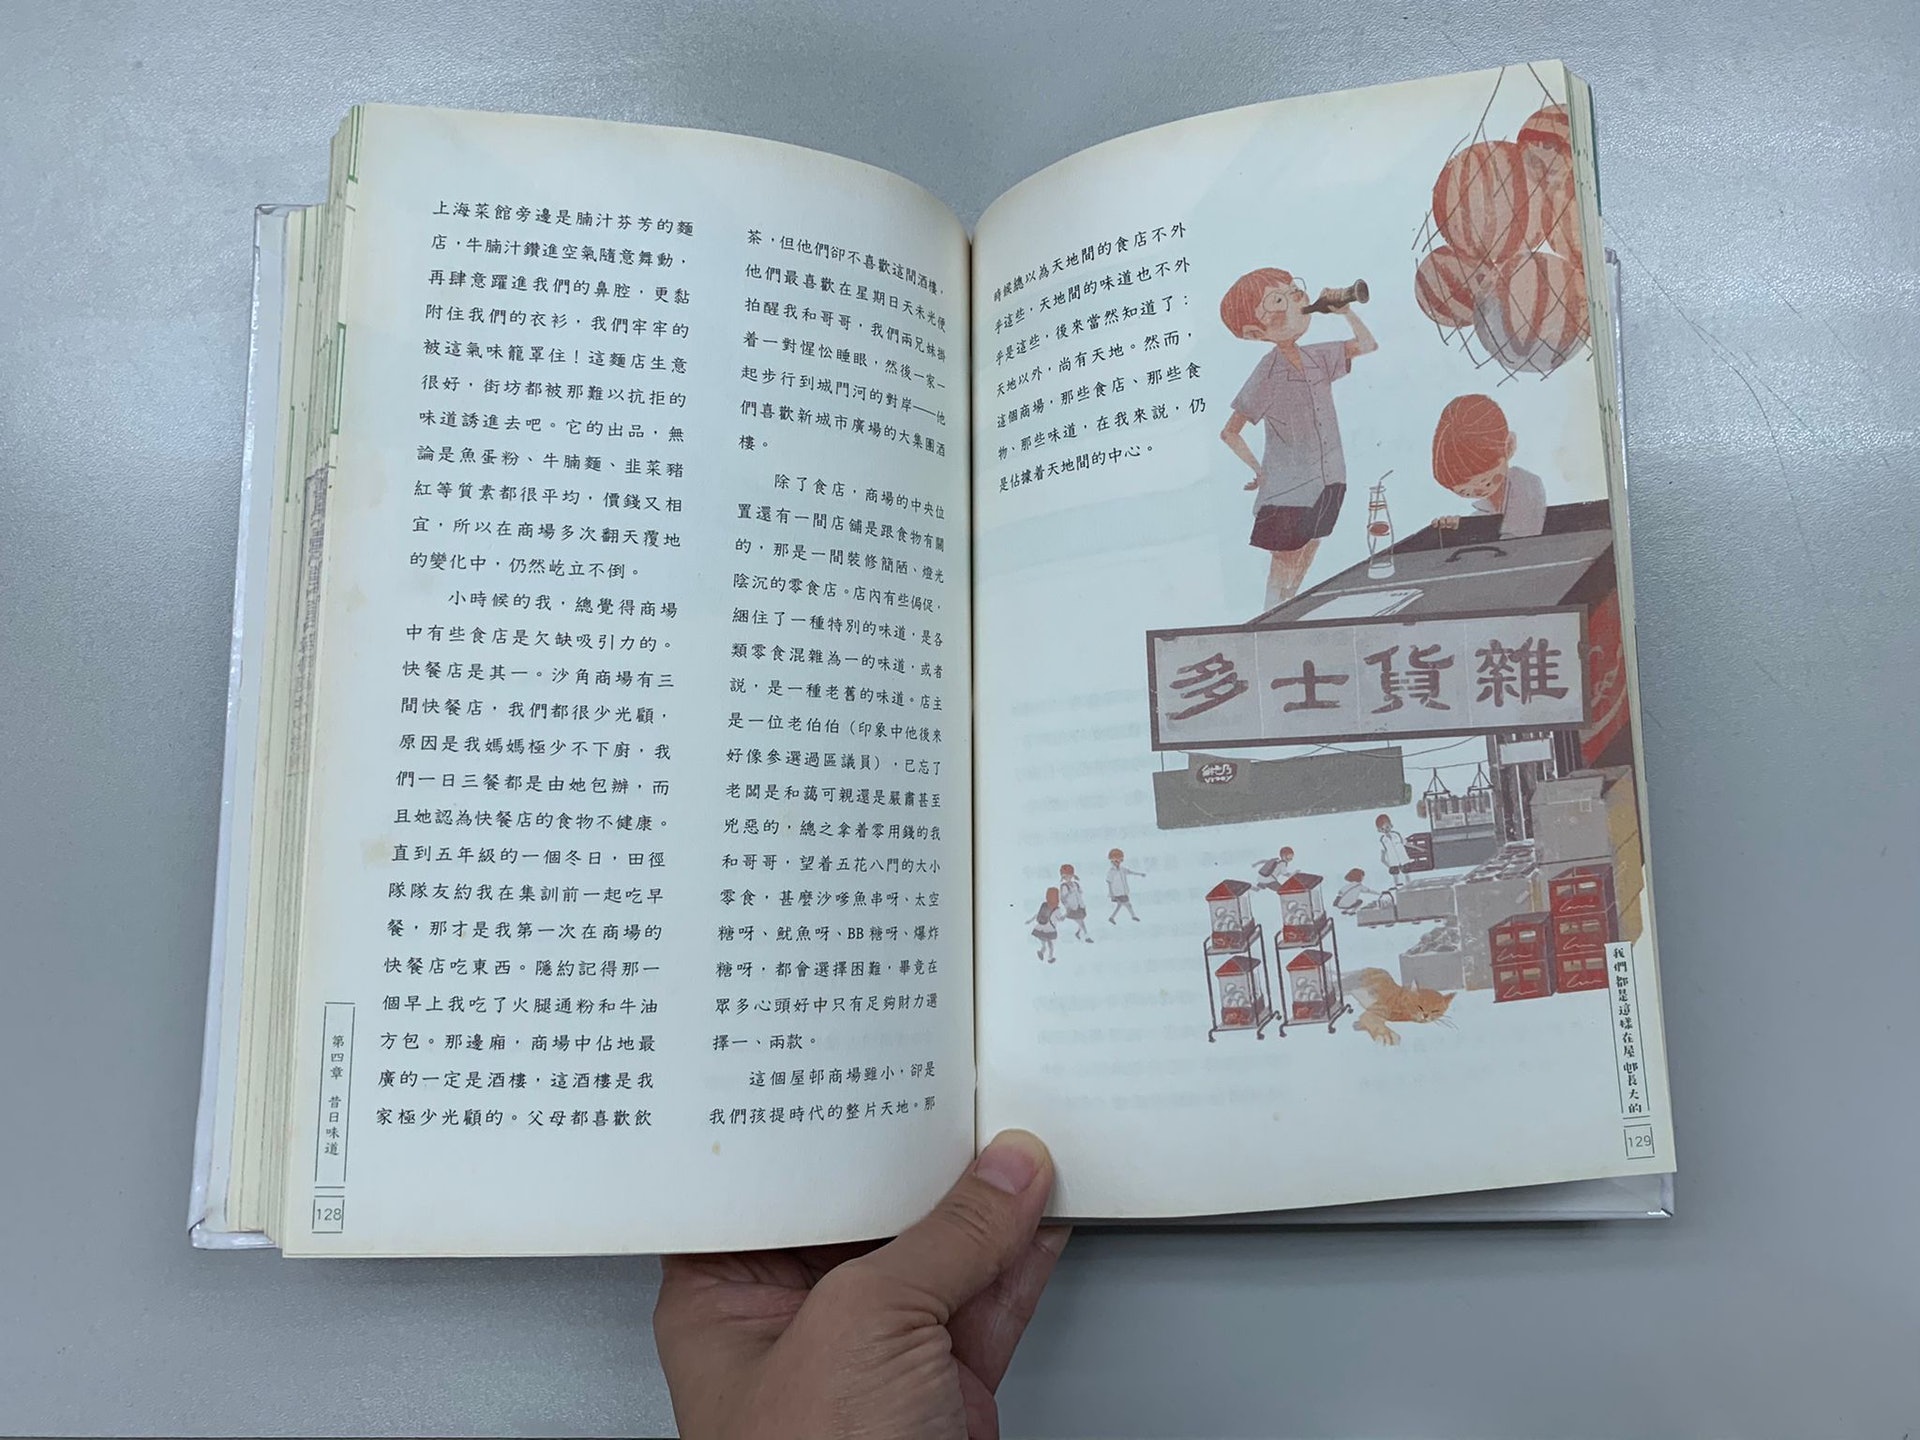 上海菜館旁邊是腩汁芬芳的麵
店，牛腩汁鑽進空氣隨意舞動，
再肆意躍進我們的鼻腔，更黏
附住我們的衣衫，我們牢牢的
被這氣味籠罩住！這麵店生意
很好，街坊都被那難以抗拒的
味道誘進去吧。它的出品，無
論是魚蛋粉、牛腩麵、韭菜豬
紅等質素都很平均，價錢又相
宜，所以在商場多次翻天覆地
的變化中，仍然屹立不倒。
小時候的我，總覺得商場
中有些食店是欠缺吸引力的。
快餐店是其一。沙角商場有三
間快餐店，我們都很少光顧，
原因是我媽媽極少不下廚，我
們一日三餐都是由她包辦，而
且她認為快餐店的食物不健康。
直到五年級的一個冬日，田徑
隊隊友約我在集訓前一起吃早
餐，那才是我第一次在商場的
快餐店吃東西。隱約記得那一
個早上我吃了火腿通粉和牛油
方包。那邊廂，商場中佔地最
廣的一定是酒樓，這酒樓是我
家極少光顧的。父母都喜歡飲
茶，但他們卻不喜歡這間酒樓，
他們最喜歡在星期日天未光便
拍醒我和哥哥，我們兩兄妹掛
着一對惺忪睡眼，然後一家一
起步行到城門河的對岸——他
們喜歡新城市廣場的大集團酒
樓。
除了食店，商場的中央位
置還有一間店舖是跟食物有關
的，那是一間裝修簡陋、燈光
陰沉的零食店。店內有些侷促，
綑住了一種特別的味道，是各
類零食混雜為一的味道，或者
說，是一種老舊的味道。店主
是一位老伯伯（印象中他後來
好像參選過區議員），已忘了
老闆是和藹可親還是嚴肅甚至
兇惡的，總之拿着零用錢的我
和哥哥，望着五花八門的大小
零食，甚麼沙嗲魚串呀、太空
糖呀、魷魚呀、BB糖呀、爆炸
糖呀，都會選擇困難，畢竟在
眾多心頭好中只有足夠財力選
擇一、兩款。
這個屋邨商場雖小，卻是
我們孩提時代的整片天地。那
第四章 昔日味道
128
時候總以為天地間的食店不外
乎這些，天地間的味道也不外
乎是這些，後來當然知道了：
天地以外，尚有天地。然而，
這個商場，那些食店、那些食
物、那些味道，在我來說，仍
是佔據着天地間的中心。
多士貨雜
維他奶
VITASOY
我們都是這樣在屋邨長大的
129